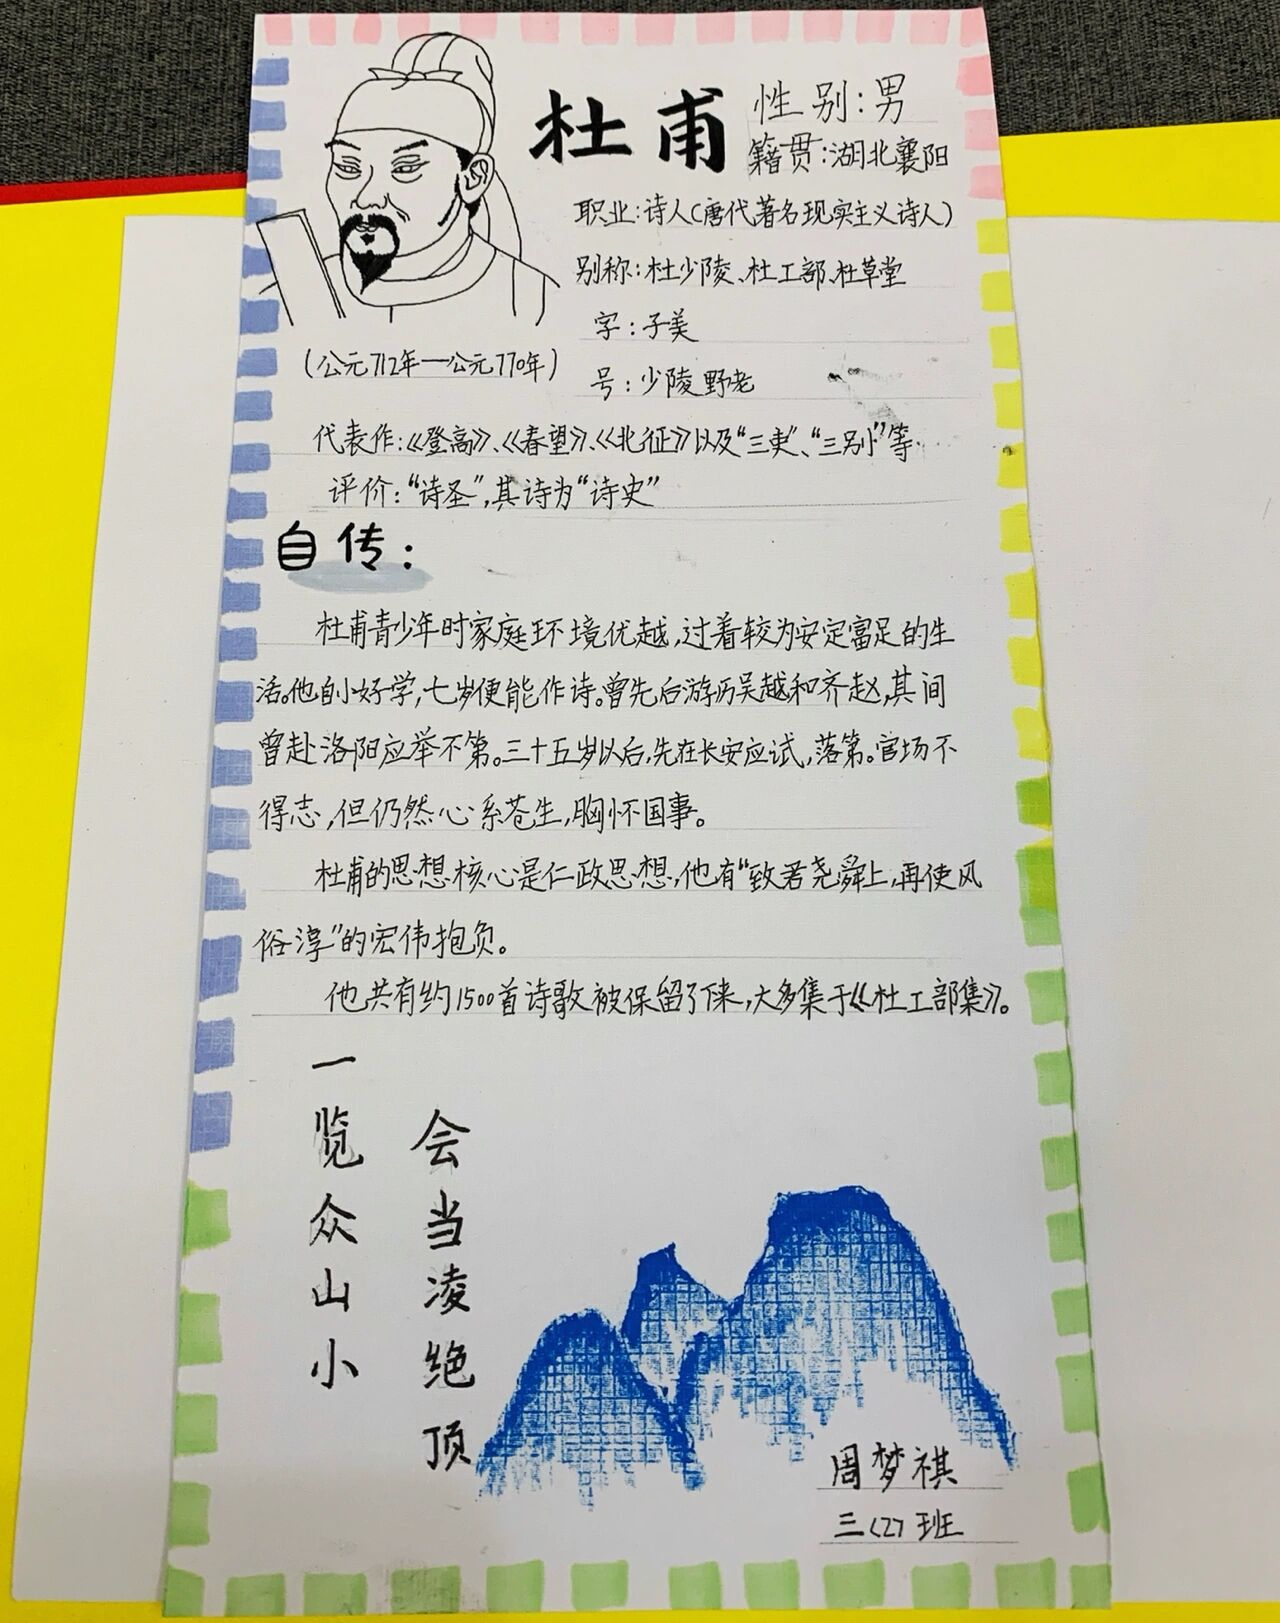 杜甫
性别:男
籍贯:湖北襄阳
职业:诗人(唐代著名现实主义诗人)
别称:杜少陵、杜工部、杜草堂
字:子美
(公元712年—公元770年)
号:少陵野老
代表作:《登高》、《春望》、《北征》以及“三吏”、“三别”等.
评价:“诗圣”,其诗为“诗史”
自传:
杜甫青少年时家庭环境优越,过着较为安定富足的生
活。他自小好学,七岁便能作诗。曾先后游历吴越和齐赵,其间
曾赴洛阳应举不第。三十五岁以后,先在长安应试,落第。官场不
得志,但仍然心系苍生,胸怀国事。
杜甫的思想核心是仁政思想,他有“致君尧舜上,再使风
俗淳”的宏伟抱负。
他共有约1500首诗歌被保留了下来,大多集于《杜工部集》。
会当凌绝顶
一览众山小
周梦祺
三〈2〉班